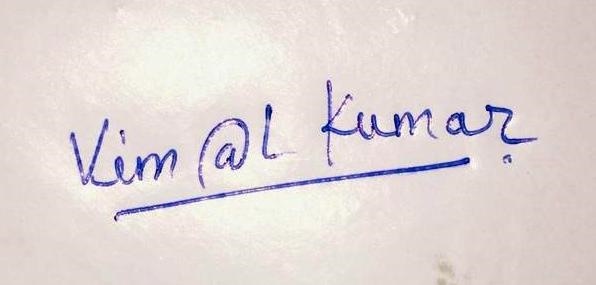 Vim@L Kumar.